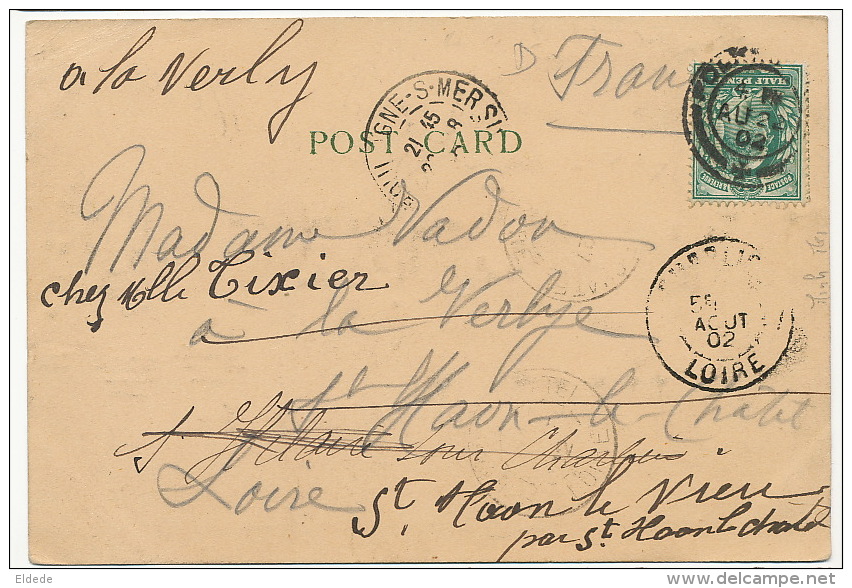 à la Verly
France
POST CARD
HALF PENNY
POSTAGE & REVENUE
AU 02
GNE-S-MER
21 45
Madame Vadon
chez Mlle Tixier
à la Verlye
St Haon-le-Chatel
St Hilaire sous Charlieu
Loire
St Haon le Vieux
par St Haon le Chatel
CHARLIEU
AOUT
02
LOIRE
Eldede
delcampe.net